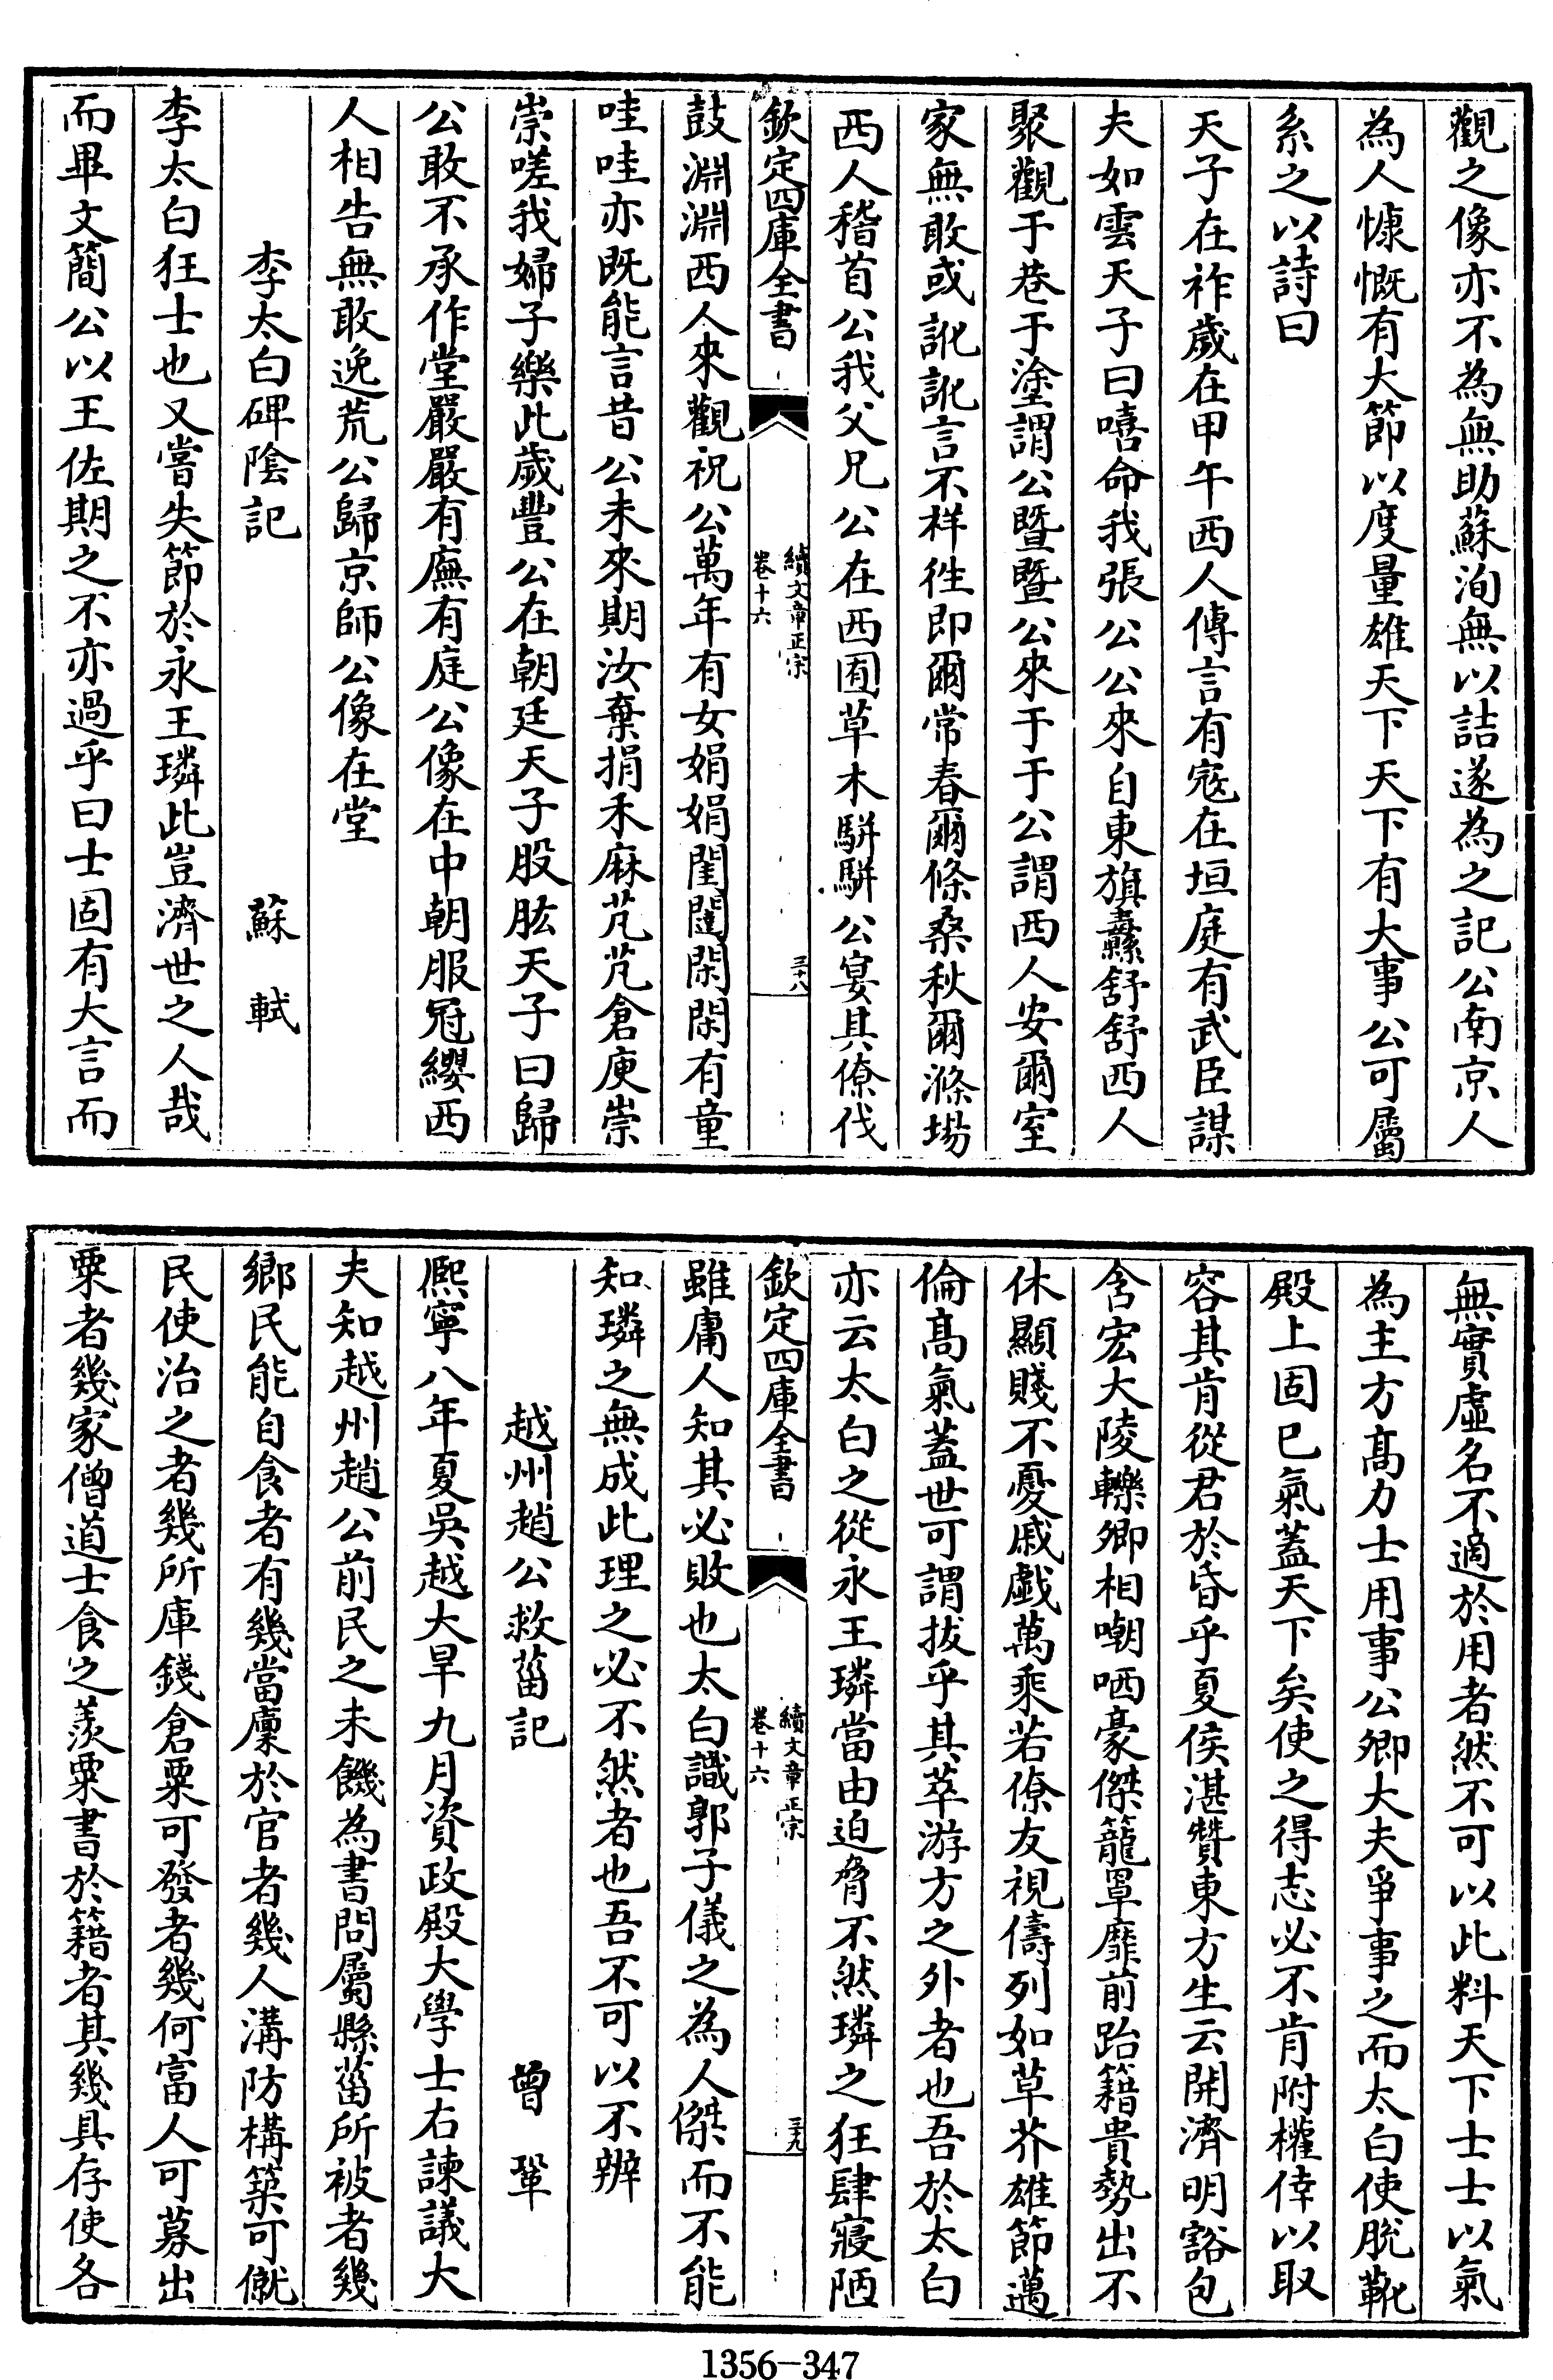 觀之像亦不為無助蘇洵無以詰遂為之記公南京人
為人慷慨有大節以度量雄天下天下有大事公可屬
系之以詩曰
天子在祚歲在甲午西人傳言有寇在垣庭有武臣謀
夫如雲天子曰嘻命我張公公來自東旗纛舒舒西人
聚觀于巷于塗謂公暨暨公來于于公謂西人安爾室
家無敢或訛訛言不祥往即爾常春爾條桑秋爾滌場
西人稽首公我父兄公在西囿草木駢駢公宴其僚伐
欽定四庫全書
續文章正宗
卷十六
三十八
鼓淵淵西人來觀祝公萬年有女娟娟閨闥閑閑有童
哇哇亦既能言昔公未來期汝棄捐禾麻芃芃倉庾崇
崇嗟我婦子樂此歲豐公在朝廷天子股肱天子曰歸
公敢不承作堂嚴嚴有廡有庭公像在中朝服冠纓西
人相告無敢逸荒公歸京師公像在堂
李太白碑陰記
蘇軾
李太白狂士也又嘗失節於永王璘此豈濟世之人哉
而畢文簡公以王佐期之不亦過乎曰士固有大言而
無實虛名不適於用者然不可以此料天下士士以氣
為主方髙力士用事公卿大夫爭事之而太白使脫鞾
殿上固已氣蓋天下矣使之得志必不肯附權倖以取
容其肯從君於昏乎夏侯湛贊東方生云開濟明豁包
含宏大陵轢卿相嘲哂豪傑籠罩靡前跆籍貴勢出不
休顯賤不憂戚戯萬乘若僚友視儔列如草芥雄節邁
倫髙氣蓋世可謂拔乎其萃游方之外者也吾於太白
亦云太白之從永王璘當由迫脅不然璘之狂肆寢陋
欽定四庫全書
續文章正宗
卷十六
三十九
雖庸人知其必敗也太白識郭子儀之為人傑而不能
知璘之無成此理之必不然者也吾不可以不辨
越州趙公救菑記
曾鞏
熈寧八年夏吳越大旱九月資政殿大學士右諫議大
夫知越州趙公前民之未饑為書問屬縣菑所被者幾
鄉民能自食者有幾當廩於官者幾人溝防構築可僦
民使治之者幾所庫錢倉粟可發者幾何富人可募出
粟者幾家僧道士食之羨粟書於籍者其幾具存使各
1356-347